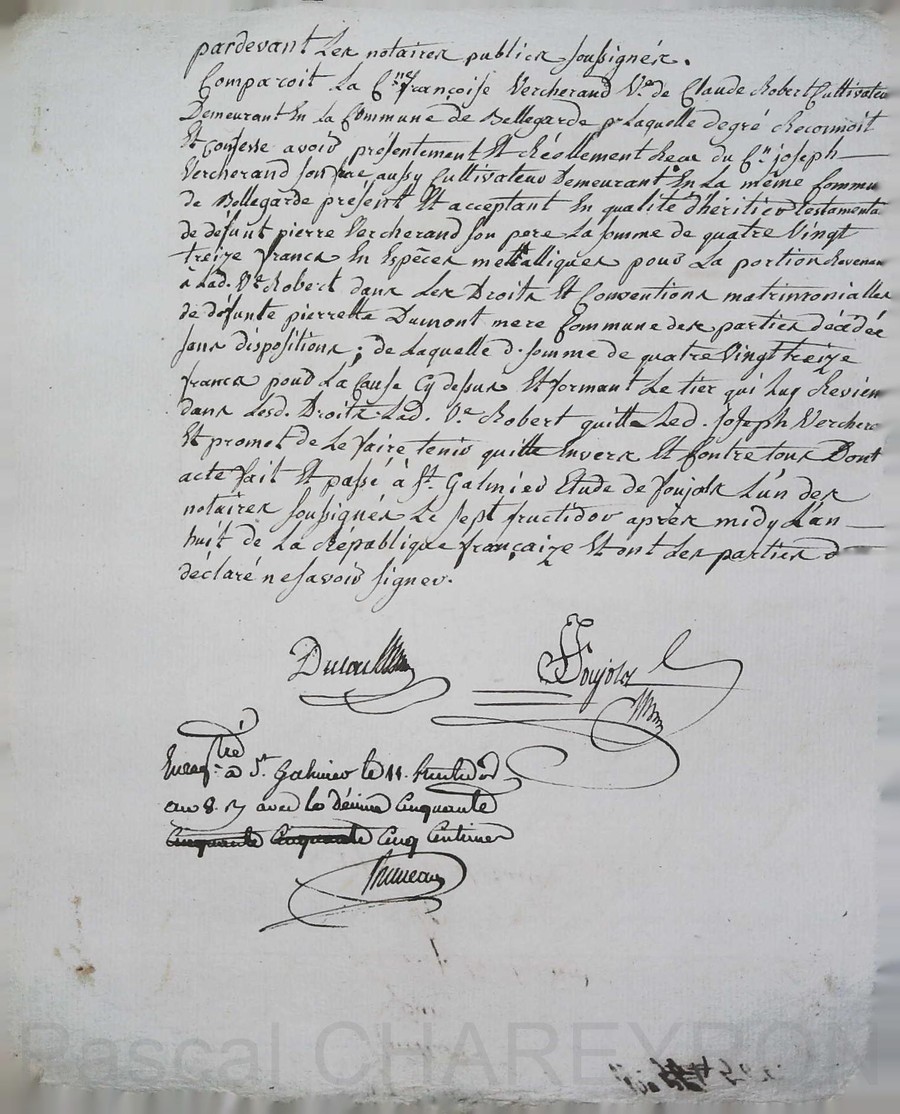 pardevant Les notaires publics soussignés.
Comparoit La C.nne françoise Vercherand V.ve de Claude Robert Cultivateu
Demeurant En La Commune de Bellegarde Laquelle degré Reconnoit
Et Confesse avoir présentement Et Réellement Receu du C.en joseph
Vercherand son frere aussy Cultivateur Demeurant En La même Commu
de Bellegarde présent Et acceptant En qualité d'héritier testamenta
de défunt pierre Vercherand son pere La somme de quatre Vingt
treize francs En Espèces metalliques pour La portion Revenan
à Lad. Ve Robert dans Les Droits Et Conventions matrimonialles
de défunte pierrette Dumont mere Commune des parties décédée
sans dispositions ; de Laquelle d. somme de quatre Vingt treize
francs pour La Cause Cy dessus Et formant Le tier qui Luy Revien
dans Lesd. Droits Lad. Ve Robert quitte Led. joseph Verchera
Et promet de Le faire tenir quitte Envers Et Contre tous Dont
acte fait Et passé à St. Galmier Etude de Soujols L'un des
notaires soussignés Le sept fructidor après midy L'an
huit de La République françaize Et ont Les parties d
déclaré ne savoir signer.
Soujols
Enregtré à St. Galmier le 11. fructidor
an 8. avec le décime Cinquante
Cinquante Cinquante Cinq Centimes
Bruneau
Pascal CHAREYRON